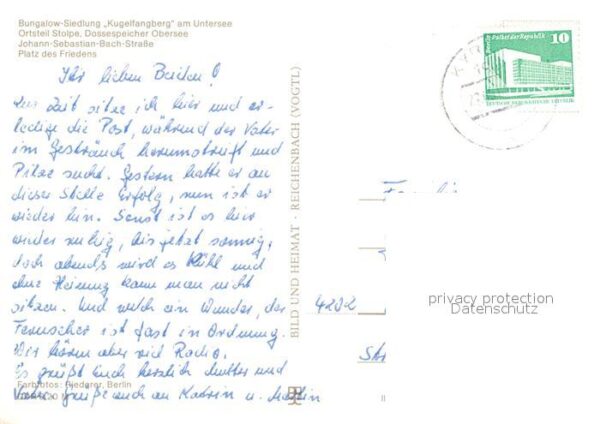 Bungalow-Siedlung „Kugelfangberg" am Untersee
Ortsteil Stolpe, Dossespeicher Obersee
Johann-Sebastian-Bach-Straße
Platz des Friedens
Ihr lieben Beiden!
Zur Zeit sitze ich hier und er-
ledige die Post, während der Vater
im Gesträuch herumstreift und
Pilze sucht. Gestern hatte er an
dieser Stelle Erfolg, nun ist er
wieder hin. Sonst ist es hier
wieder ruhig, bis jetzt sonnig,
doch abends wird es kühl und
ohne Heizung kann man nicht
sitzen. Und welch ein Wunder, der
Fernseher ist fast in Ordnung.
Wir hören aber viel Radio.
Es grüßt Euch herzlich Mutter und
Vater. Grüße auch an Katrin u. Martin
Farbfotos: Riederer, Berlin
BILD UND HEIMAT · REICHENBACH (VOGTL)
Berlin, Palast der Republik
10
DEUTSCHE DEMOKRATISCHE REPUBLIK
KYR
Familie
4202
privacy protection
Datenschutz